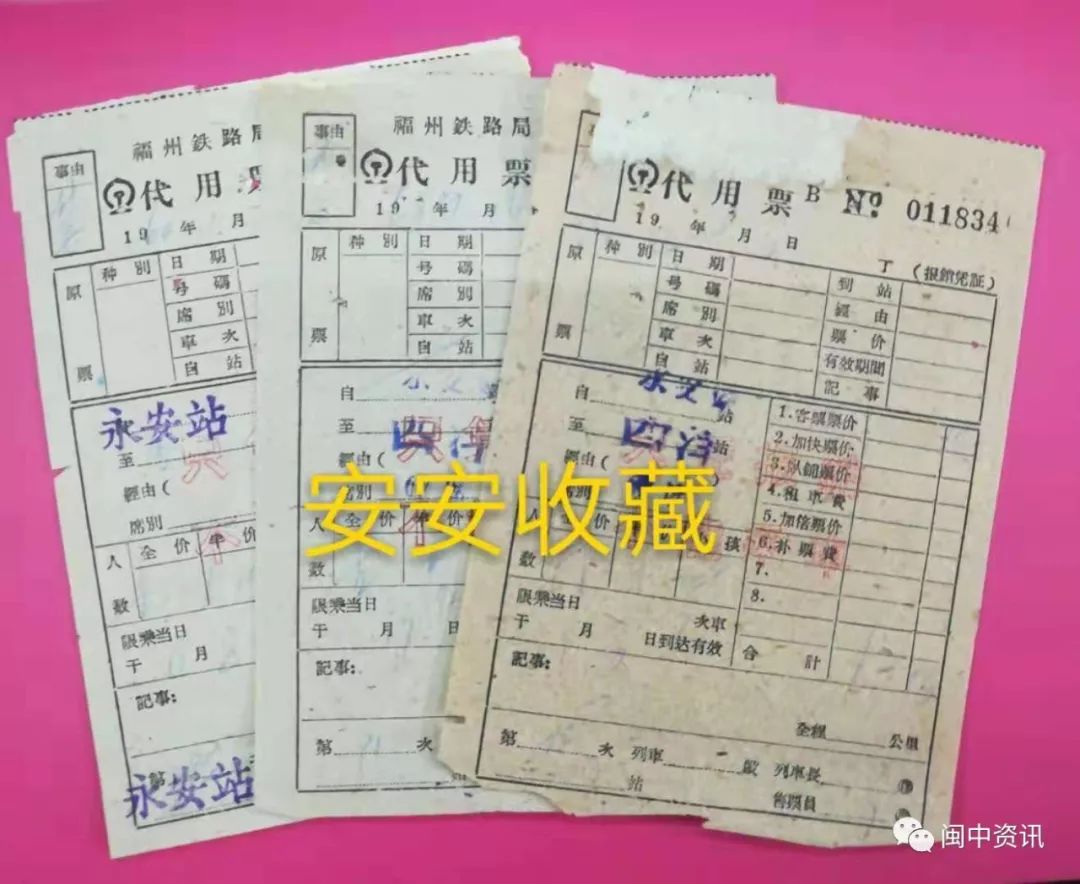 事由
福州鉄路局
代用
19 年 月
原票
种別
日期
号碼
席別
車次
自站
永安站
至
經由(
席別
人数
全价
半价
限乘当日
于 月
記事:
第
永安站
事由
福州鉄路局
代用票
19 年 月
原票
种別
日期
号碼
席別
車次
自站
自
至
經由(
席別
人数
全价
半价
限乘当日
于 月 日
記事:
第 次
事
代用票 B No. 011834
19 年 月 日
(报銷凭証)
原票
种別
日期
号碼
席別
車次
自站
到站
經由
票价
有效期間
記事
自 站
至 站
經由(
席別
人数
价
限乘当日 次車
于 月 日到达有效
1.客票票价
2.加快票价
3.臥鋪票价
4.租車費
5.加倍票价
6.补票費
7.
8.
合計
記事:
全程 公里
第 次 列車 段 列車長
站 售票員
安安收藏
闽中资讯